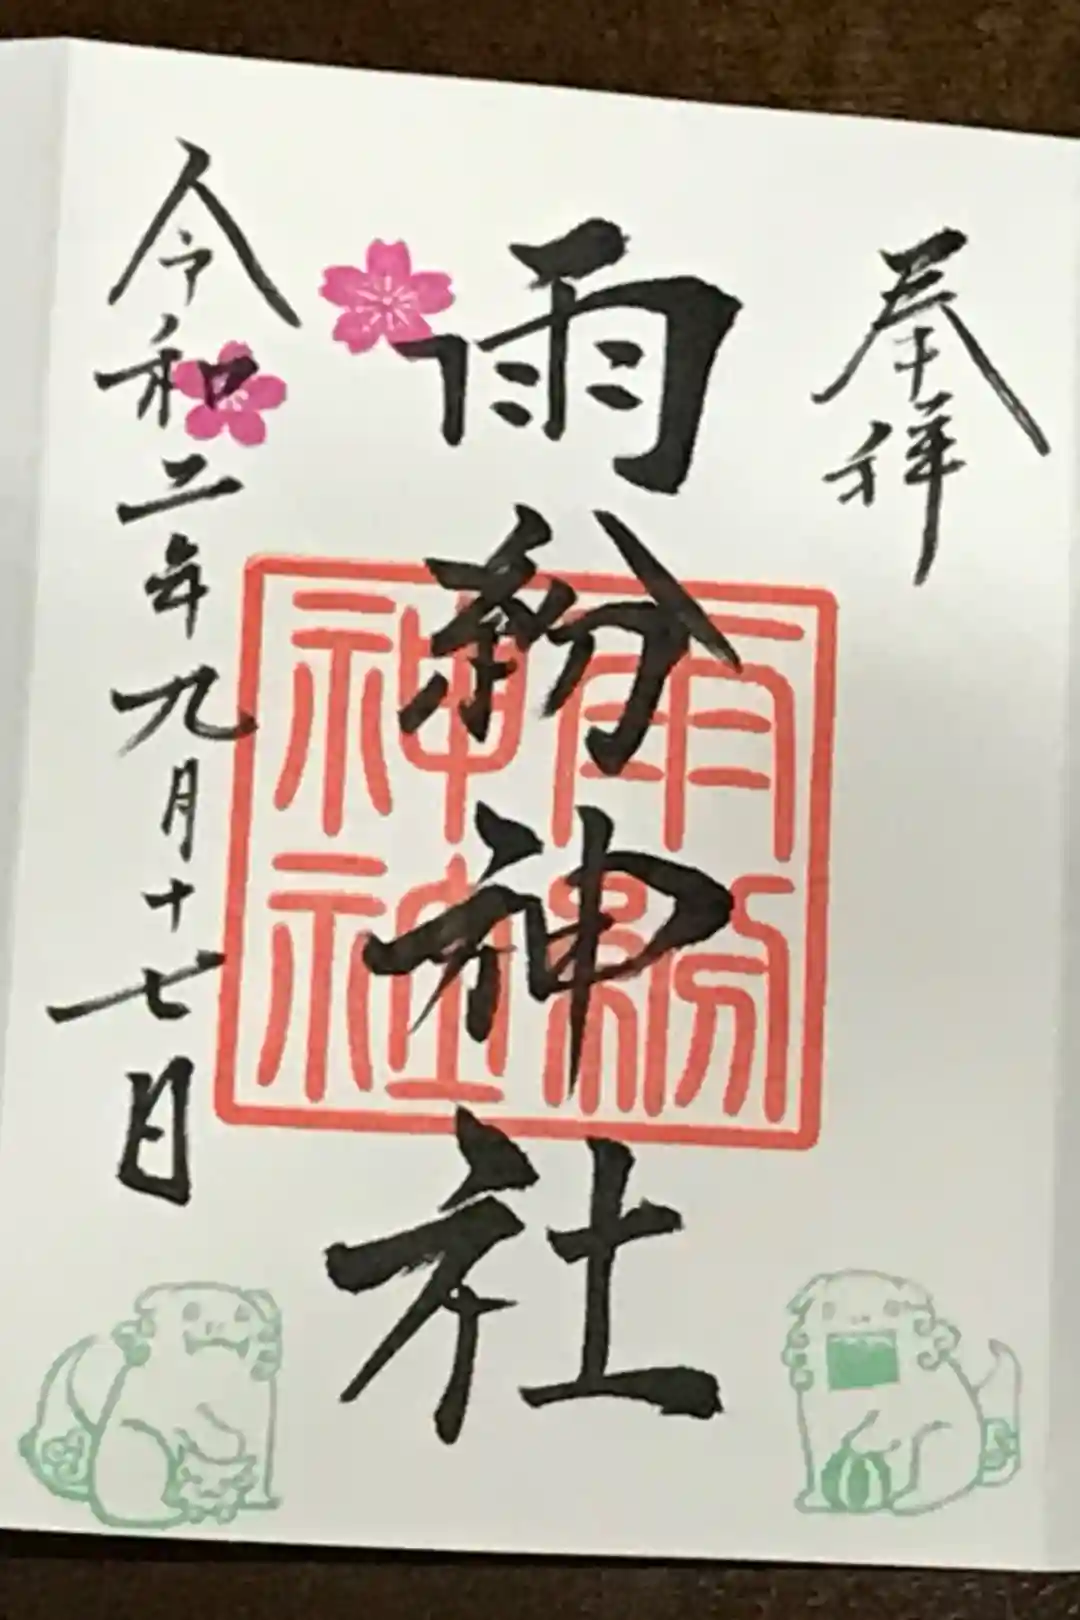 奉拝
雨紛神社
雨紛神社
令和二年九月十七日